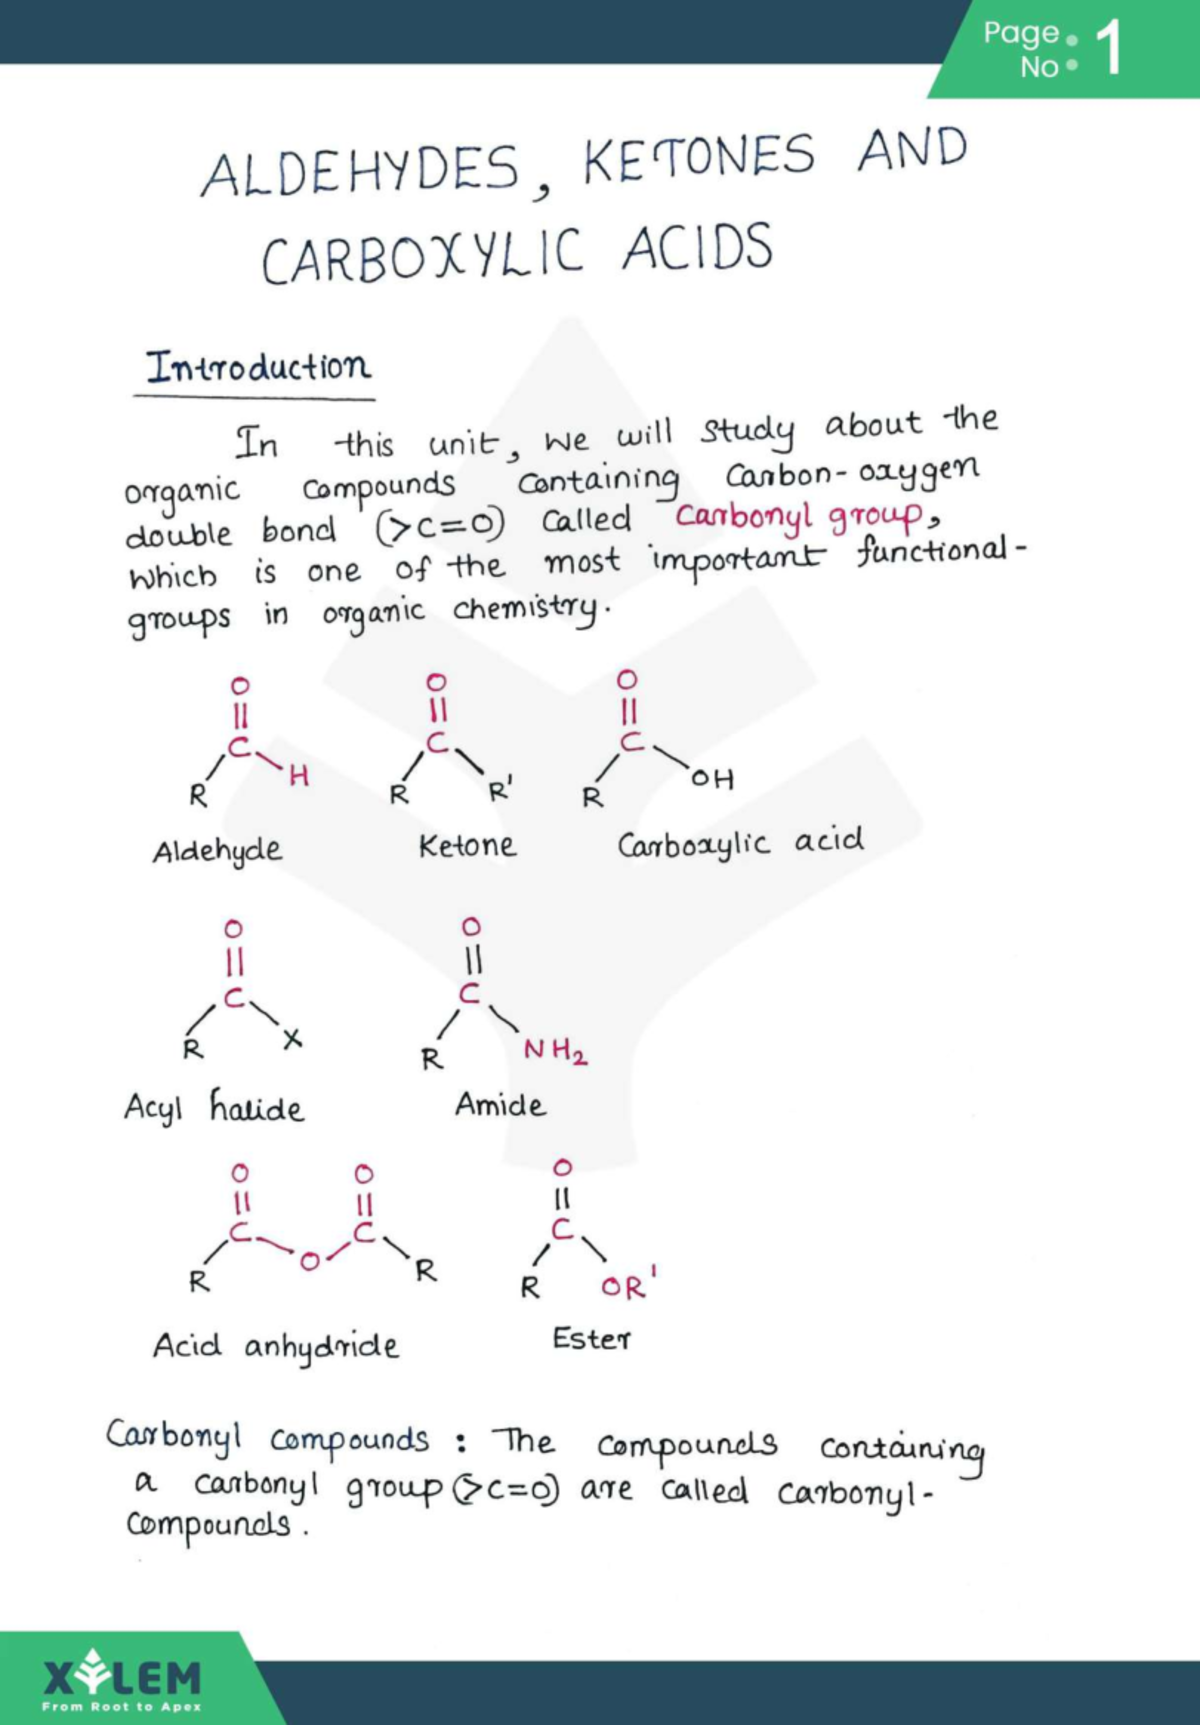 Page No : 1
ALDEHYDES, KETONES AND
CARBOXYLIC ACIDS
Introduction
In this unit, we will study about the
organic compounds containing carbon-oxygen
double bond (>C=O) called carbonyl group,
which is one of the most important functional-
groups in organic chemistry.
O O O
|| || ||
C C C
R H R R' R OH
Aldehyde Ketone Carboxylic acid
O O
|| ||
C C
R X R NH2
Acyl halide Amide
O O O
|| || ||
C C C
R O R R OR'
Acid anhydride Ester
Carbonyl compounds : The compounds containing
a carbonyl group (>C=O) are called carbonyl-
compounds.
XYLEM
From Root to Apex